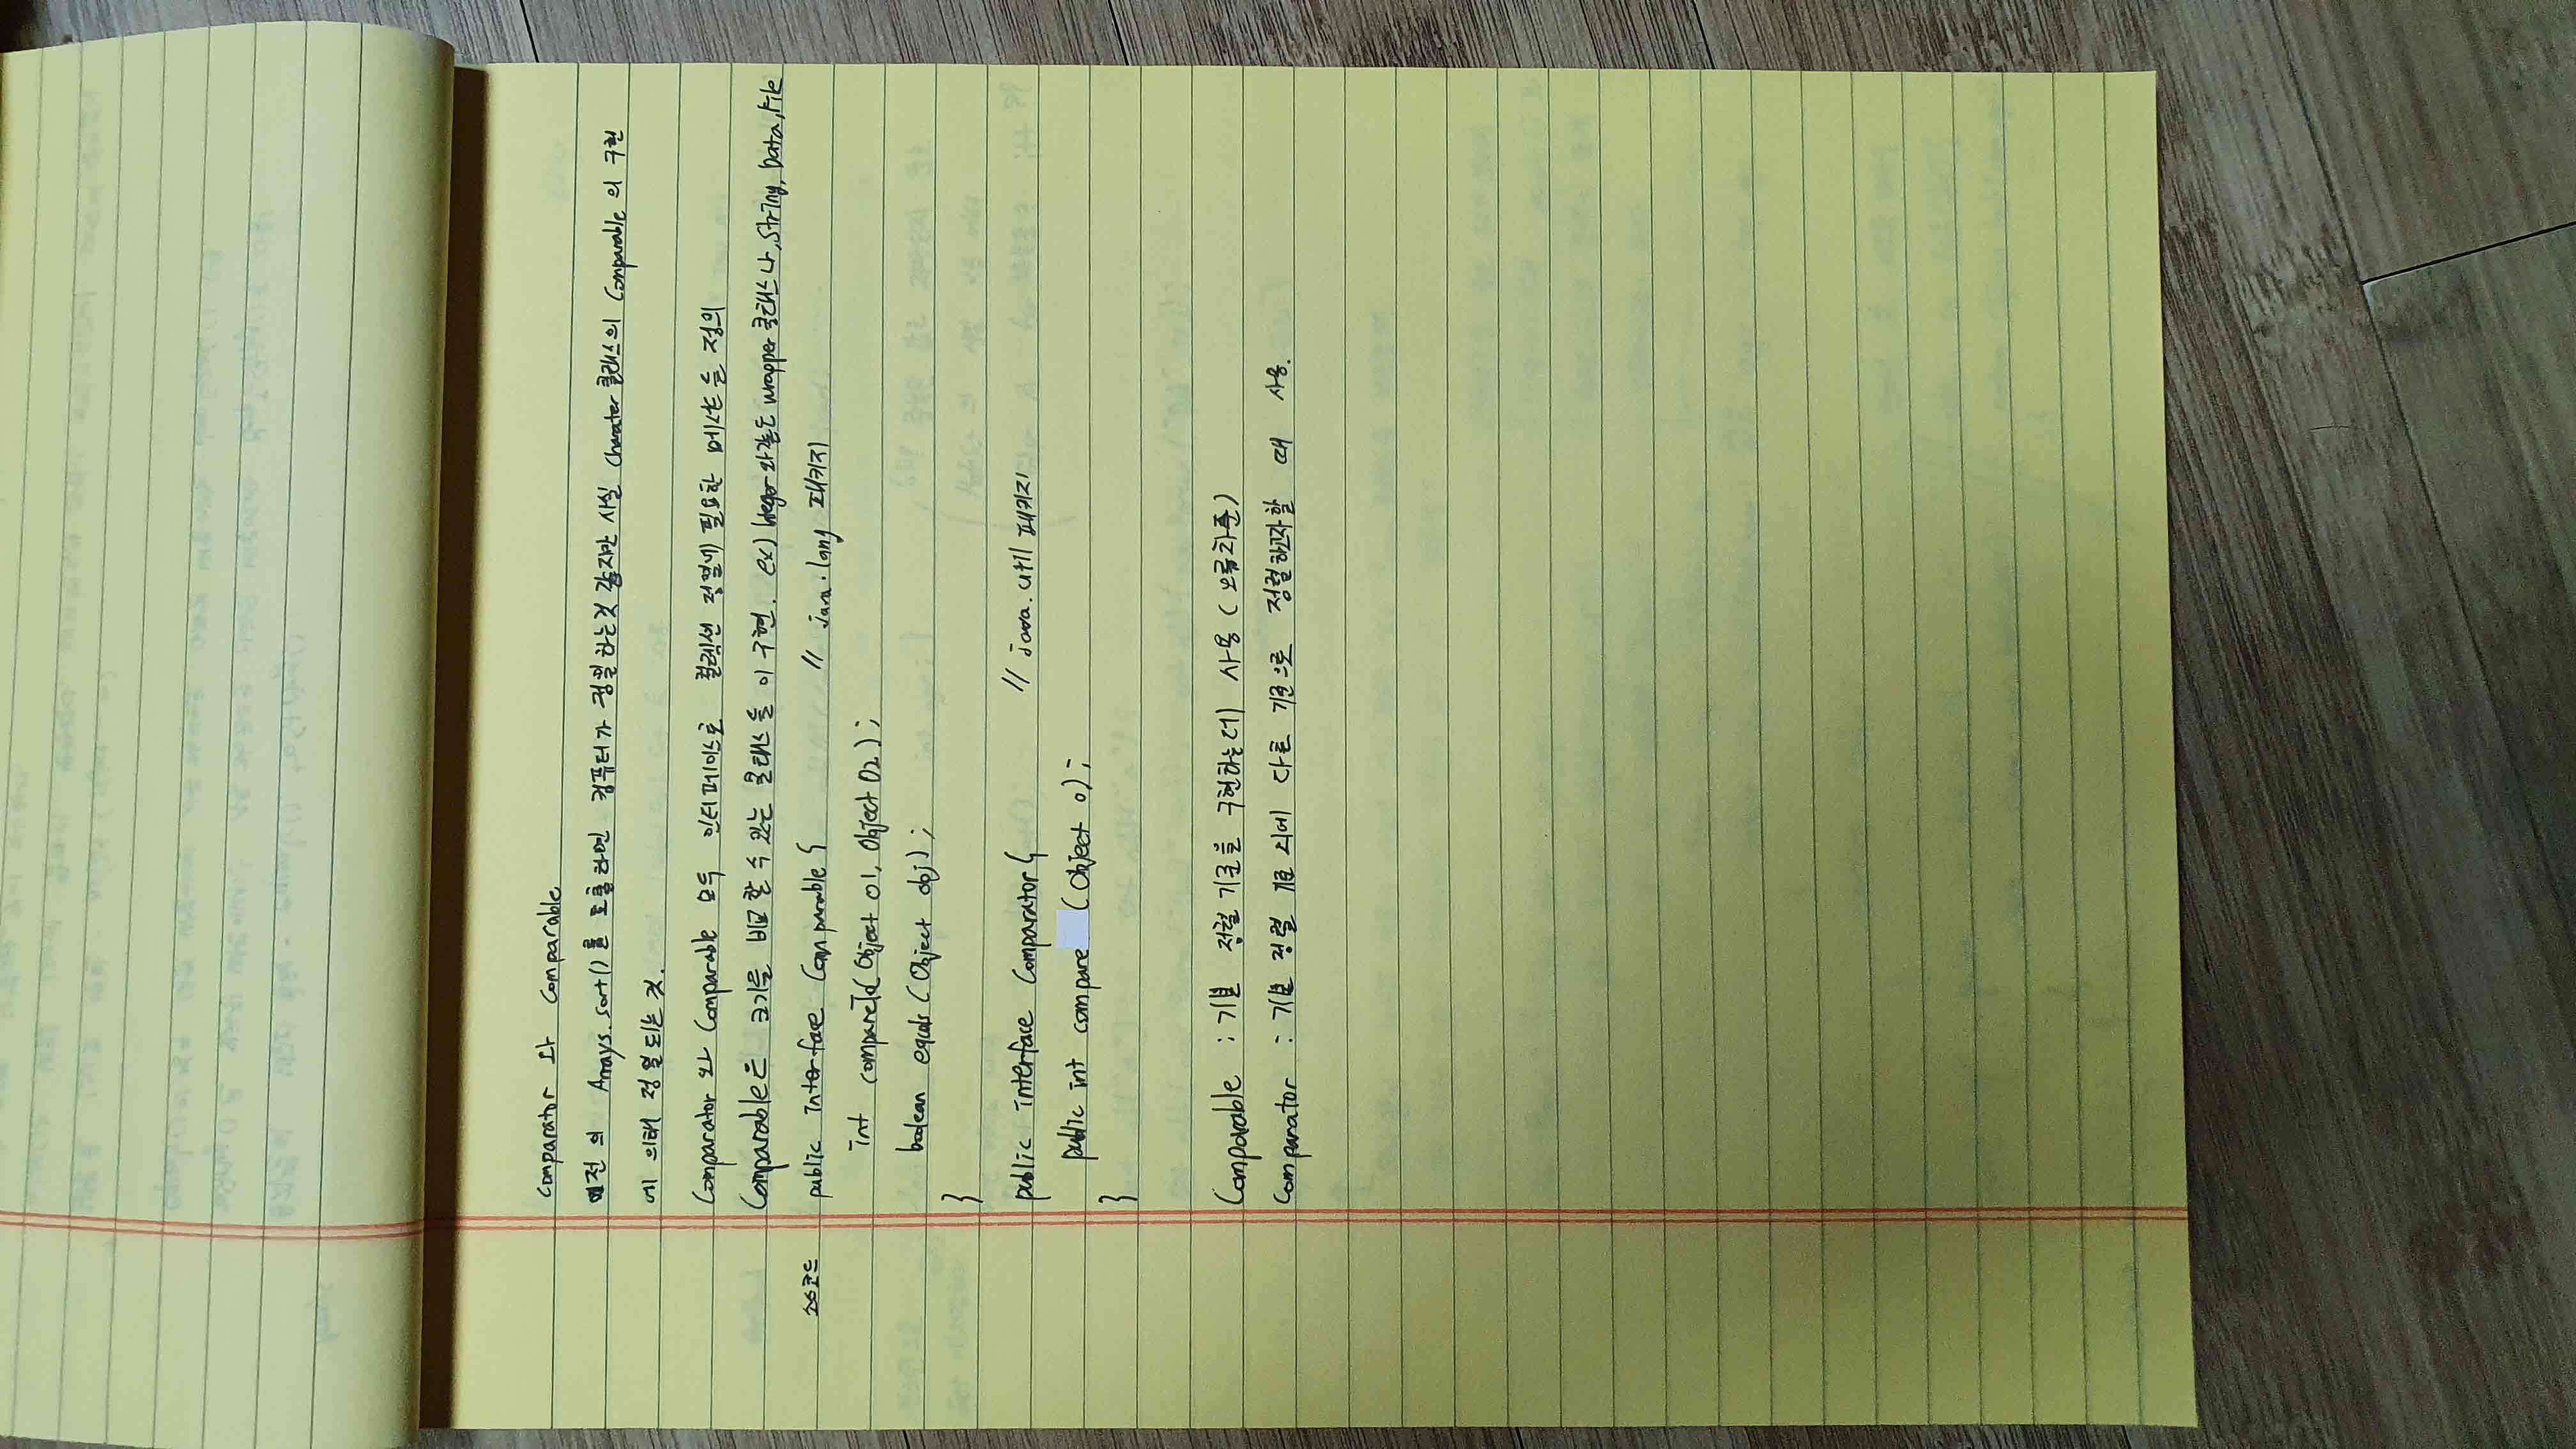 Comparator 와 Comparable
예전의 Arrays.sort()를 호출하면 컴퓨터가 정렬하는것 같지만 사실 Charater 클래스의 Comparable의 구현
에 의해 정렬되는 것.
Comparator 와 Comparable 모두 인터페이스로 컬렉션 정렬에 필요한 메서드를 정의
Comparable은 크기를 비교할 수 있는 클래스들이 구현. ex) Integer와같은 wrapper 클래스나, String, Data, File
소스코드 public interface Comparable { // java.lang 패키지
int compareTo(Object o1, Object O2);
boolean equals (Object obj);
}
public interface Comparator { // java.util 패키지
public int compare (Object o);
}
Comparable : 기본 정렬 기준을 구현하는데 사용 (오름차순)
Comparator : 기본 정렬 기준 외에 다른 기준으로 정렬하고자할 때 사용.